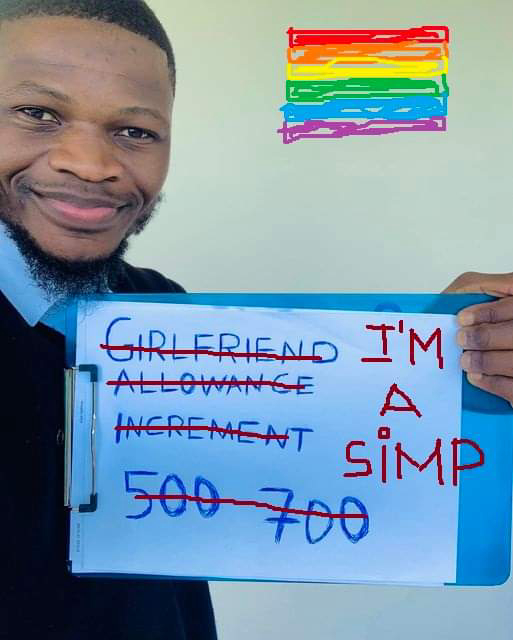 GIRLFRIEND
ALLOWANCE
INCREMENT
500 700
I'M
A
SiMP